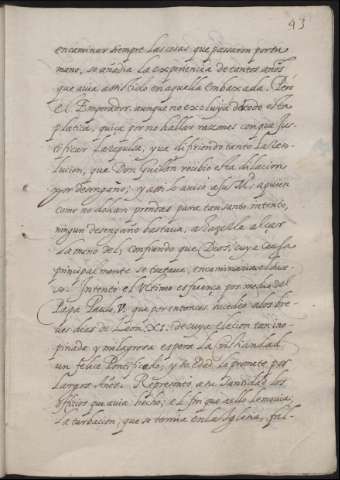 43
encaminar siempre las cosas, que passaron por su
mano, se añadia la experiencia de tantos años
que auia assistido en aquella Embaxada. Pero
el Emperador, aunque no excluya de todo esta
platica, quiça por no hallar razones con que jus-
tificar la repulsa, yua difiriendo tanto la reso-
lucion, que Don Guillen recibio esta dilacion
por desengaño; y assi lo auisó a su Mᵈ. a quien
como no dolian prendas para tan santo intento,
ningun desengaño bastaua, a hazelle alçar
la mano del, confiando que Dios, cuya causa
principalmente se trataua, encaminaria el suce-
so. Intentó el vltimo esfuerço por medio del
Papa Paulo V. que por entonces sucedio a los bre-
ues dias de Leon XI. de cuya elecion tan ino-
pinada y milagrosa espera la xpistiandad
un felice Pontificado, y su edad la promete por
largos Años. Represento a su Santidad los
officios que auia hecho, a el fin que a ello le mouia,
la turbacion, que se temia en la Iglesia, fal-